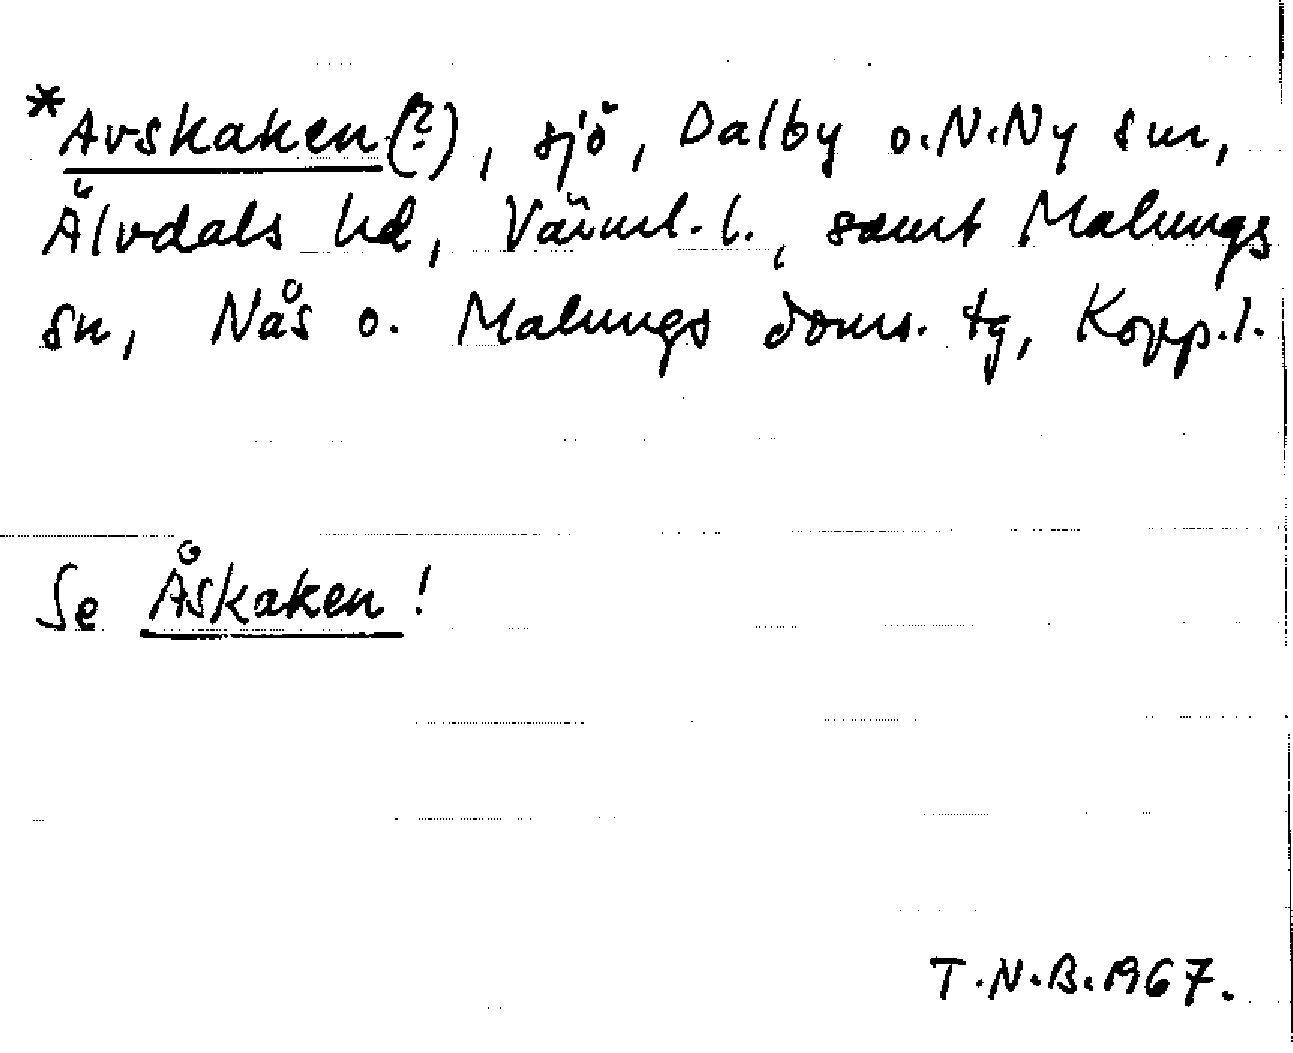 *Avskaken(?), sjö, Dalby o. N.Ny snr,
Älvdals hd, Värml. l., samt Malungs
sn, Nås o. Malungs doms. tg, Kopp. l.
Se Åskaken!
T.N.B. 1967.